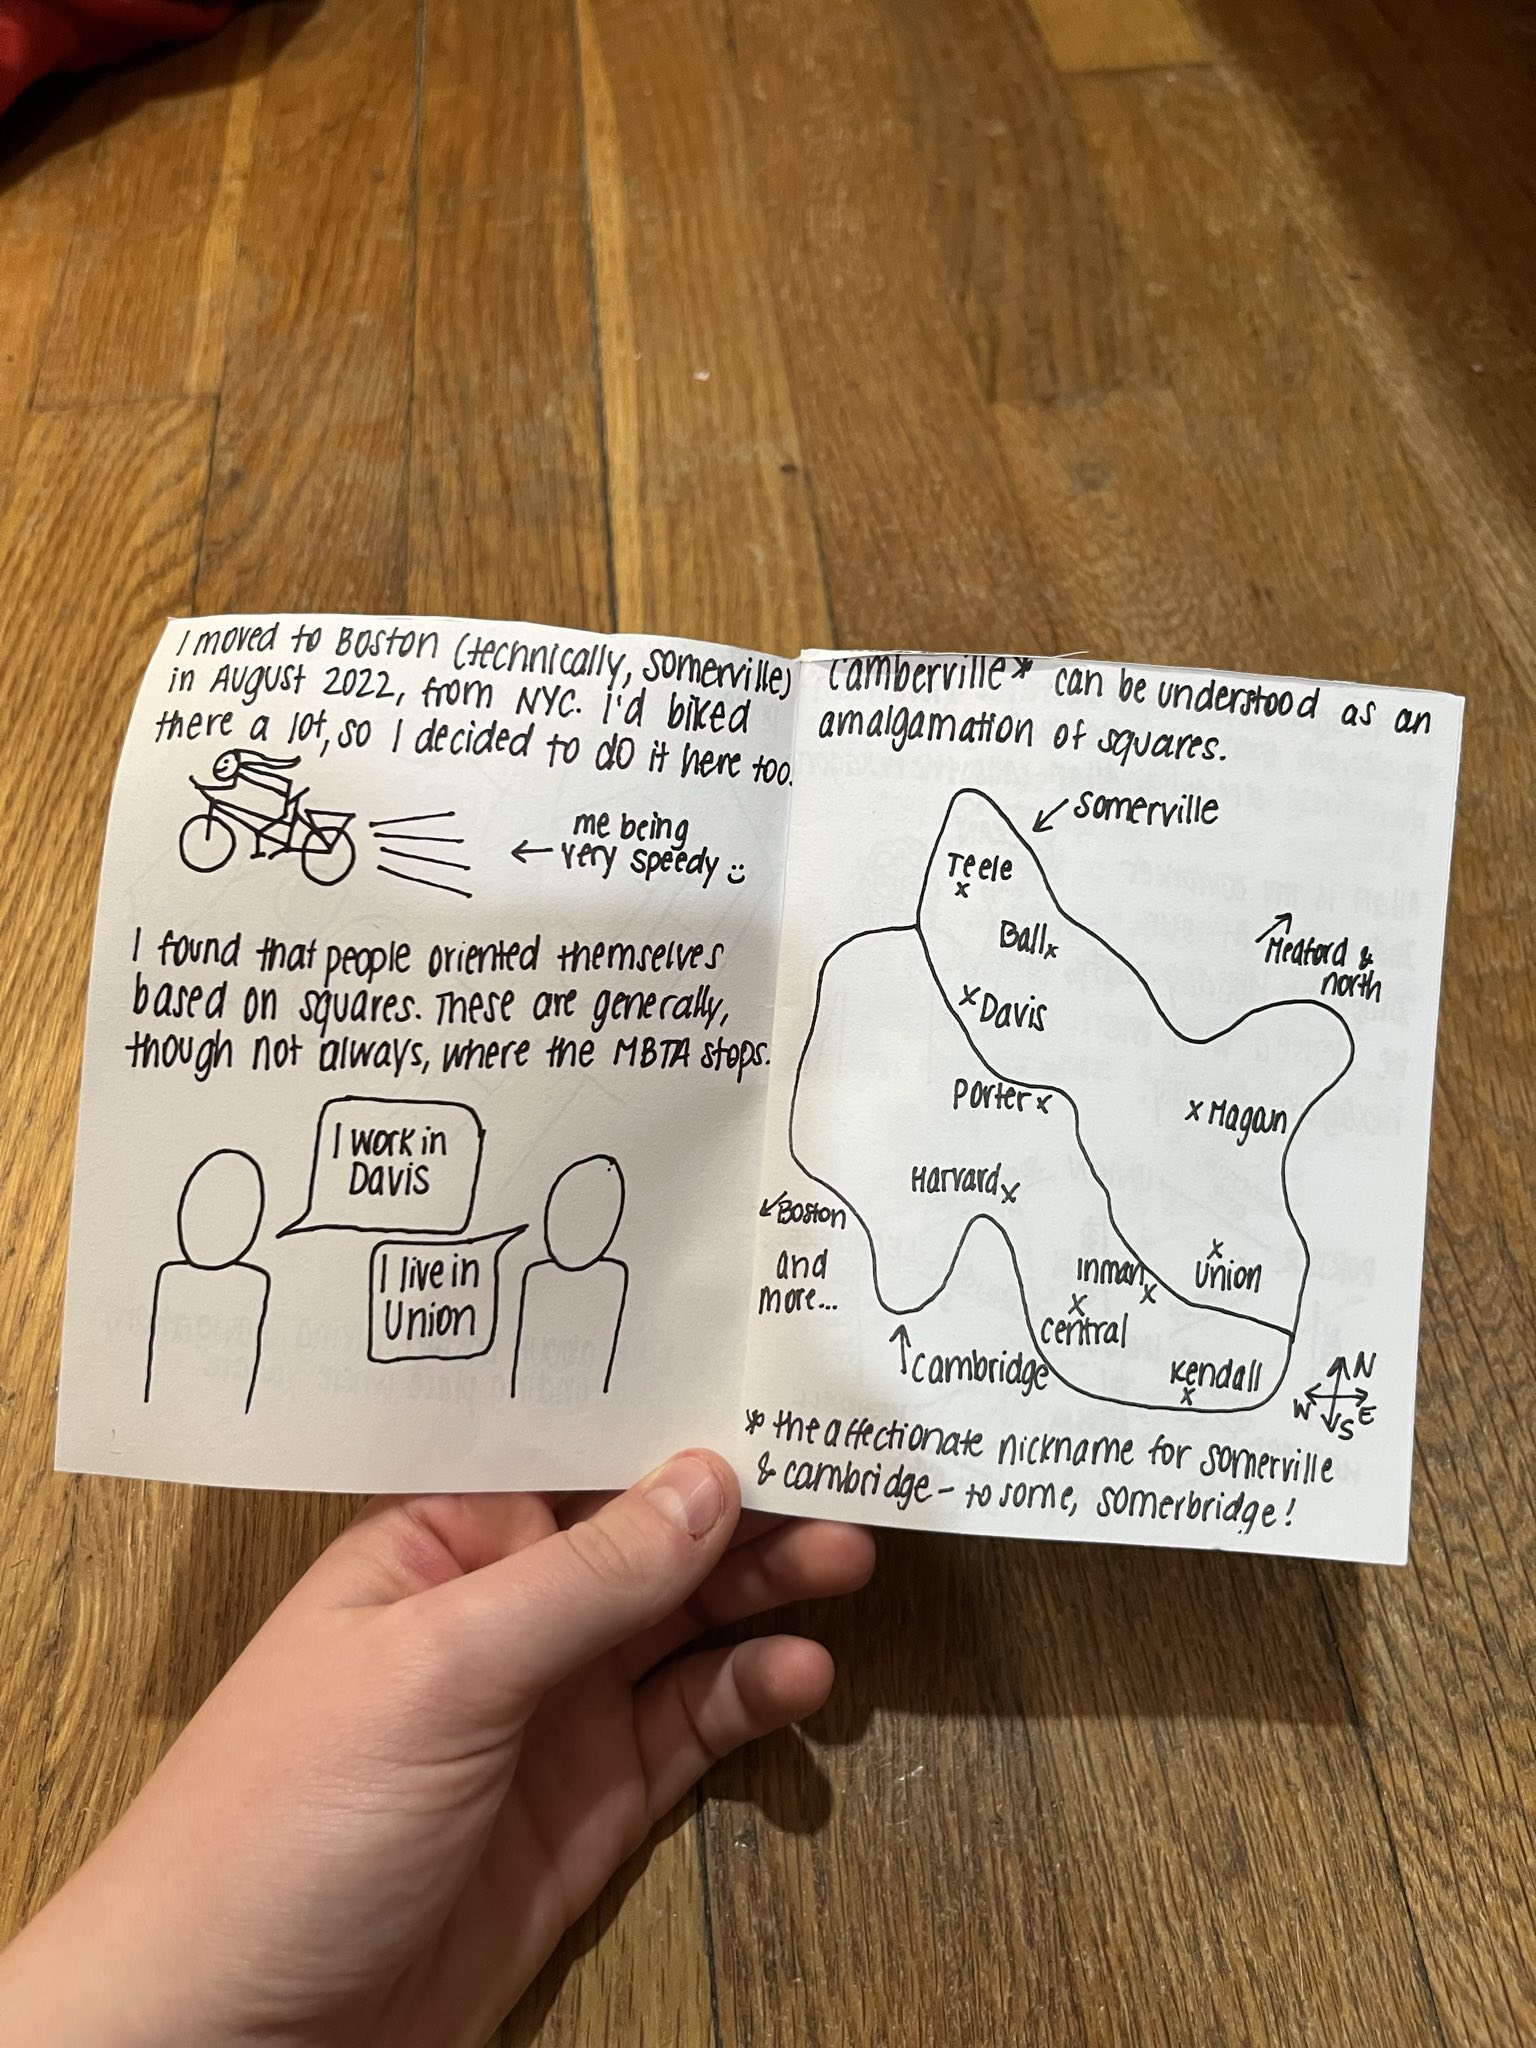 I moved to Boston (technically, somerville)
in August 2022, from NYC. I'd biked
there a lot, so I decided to do it here too.
me being
very speedy :)
I found that people oriented themselves
based on squares. These are generally,
though not always, where the MBTA stops.
I work in
Davis
I live in
Union
Camberville* can be understood as an
amalgamation of squares.
Somerville
Teele
Ball
Medford &
north
Davis
Porter
Magoun
Harvard
Boston
and
more...
Inman
Union
Central
Cambridge
Kendall
N
W E
S
* the affectionate nickname for somerville
& cambridge - to some, somerbridge!